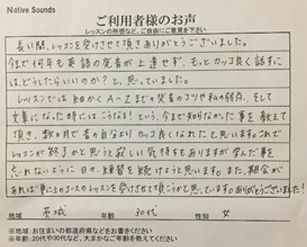 Native Sounds
ご利用者様のお声
レッスンの所感など、ご自由にご意見を下さい
長い間、レッスンを受けさせて頂きありがとうございました。
今まで何年も英語の発音が上達せず、もっとカッコ良く話すに
は、どうしたらいいのか?と、思っていました。
レッスンでは細かくA-Zまでの発音のコツや私の弱点、そして
文章になった時にはこうなる!という、今まで知らなかった事を教えて
頂き、数ヵ月で昔の自分よりカッコ良くなれたと思います。これで
レッスンが終了かと思うと寂しい気持ちもありますが学んだ事を
忘れないように日々、練習を続けようと思います。また、機会が
あれば更に上のコースのレッスンを受けさせて頂こうかと思っています。ありがとうございました!
地域 茨城 年齢 30代 性別 女
※地域:お住まいの都道府県などをお書き下さい
※年齢:20代や30代など、大まかなご年齢を教えてください